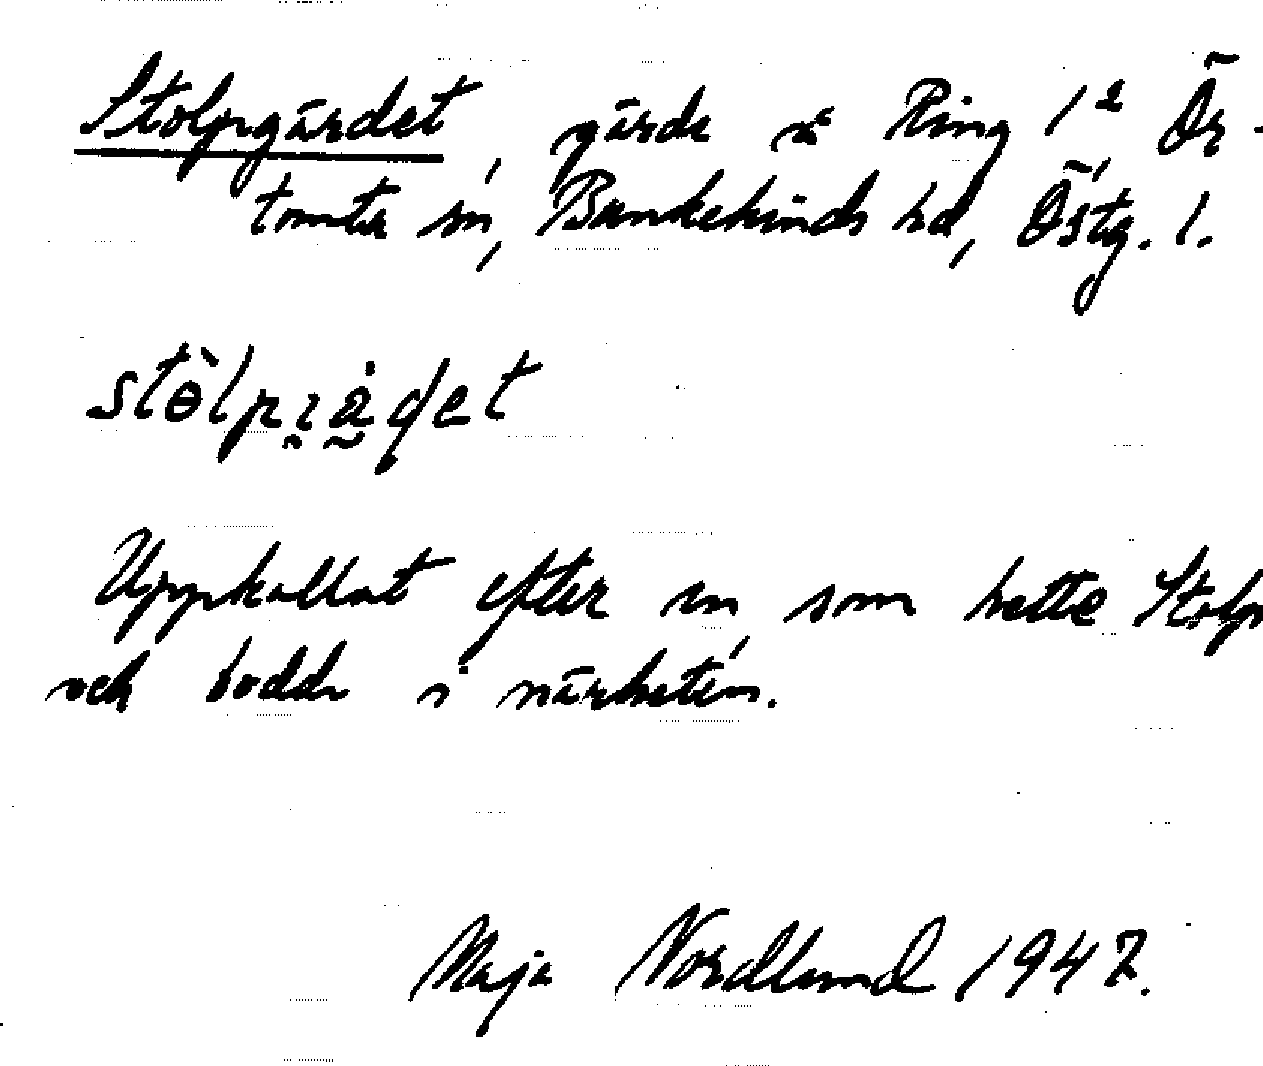 Stolpgärdet, gärde å Ring 1² Ör-
tomta sn, Bankekinds hd, Östg. l.
Uppkallat efter en som hette Stolp
och bodde i närheten.
Maja Nordlund 1947.